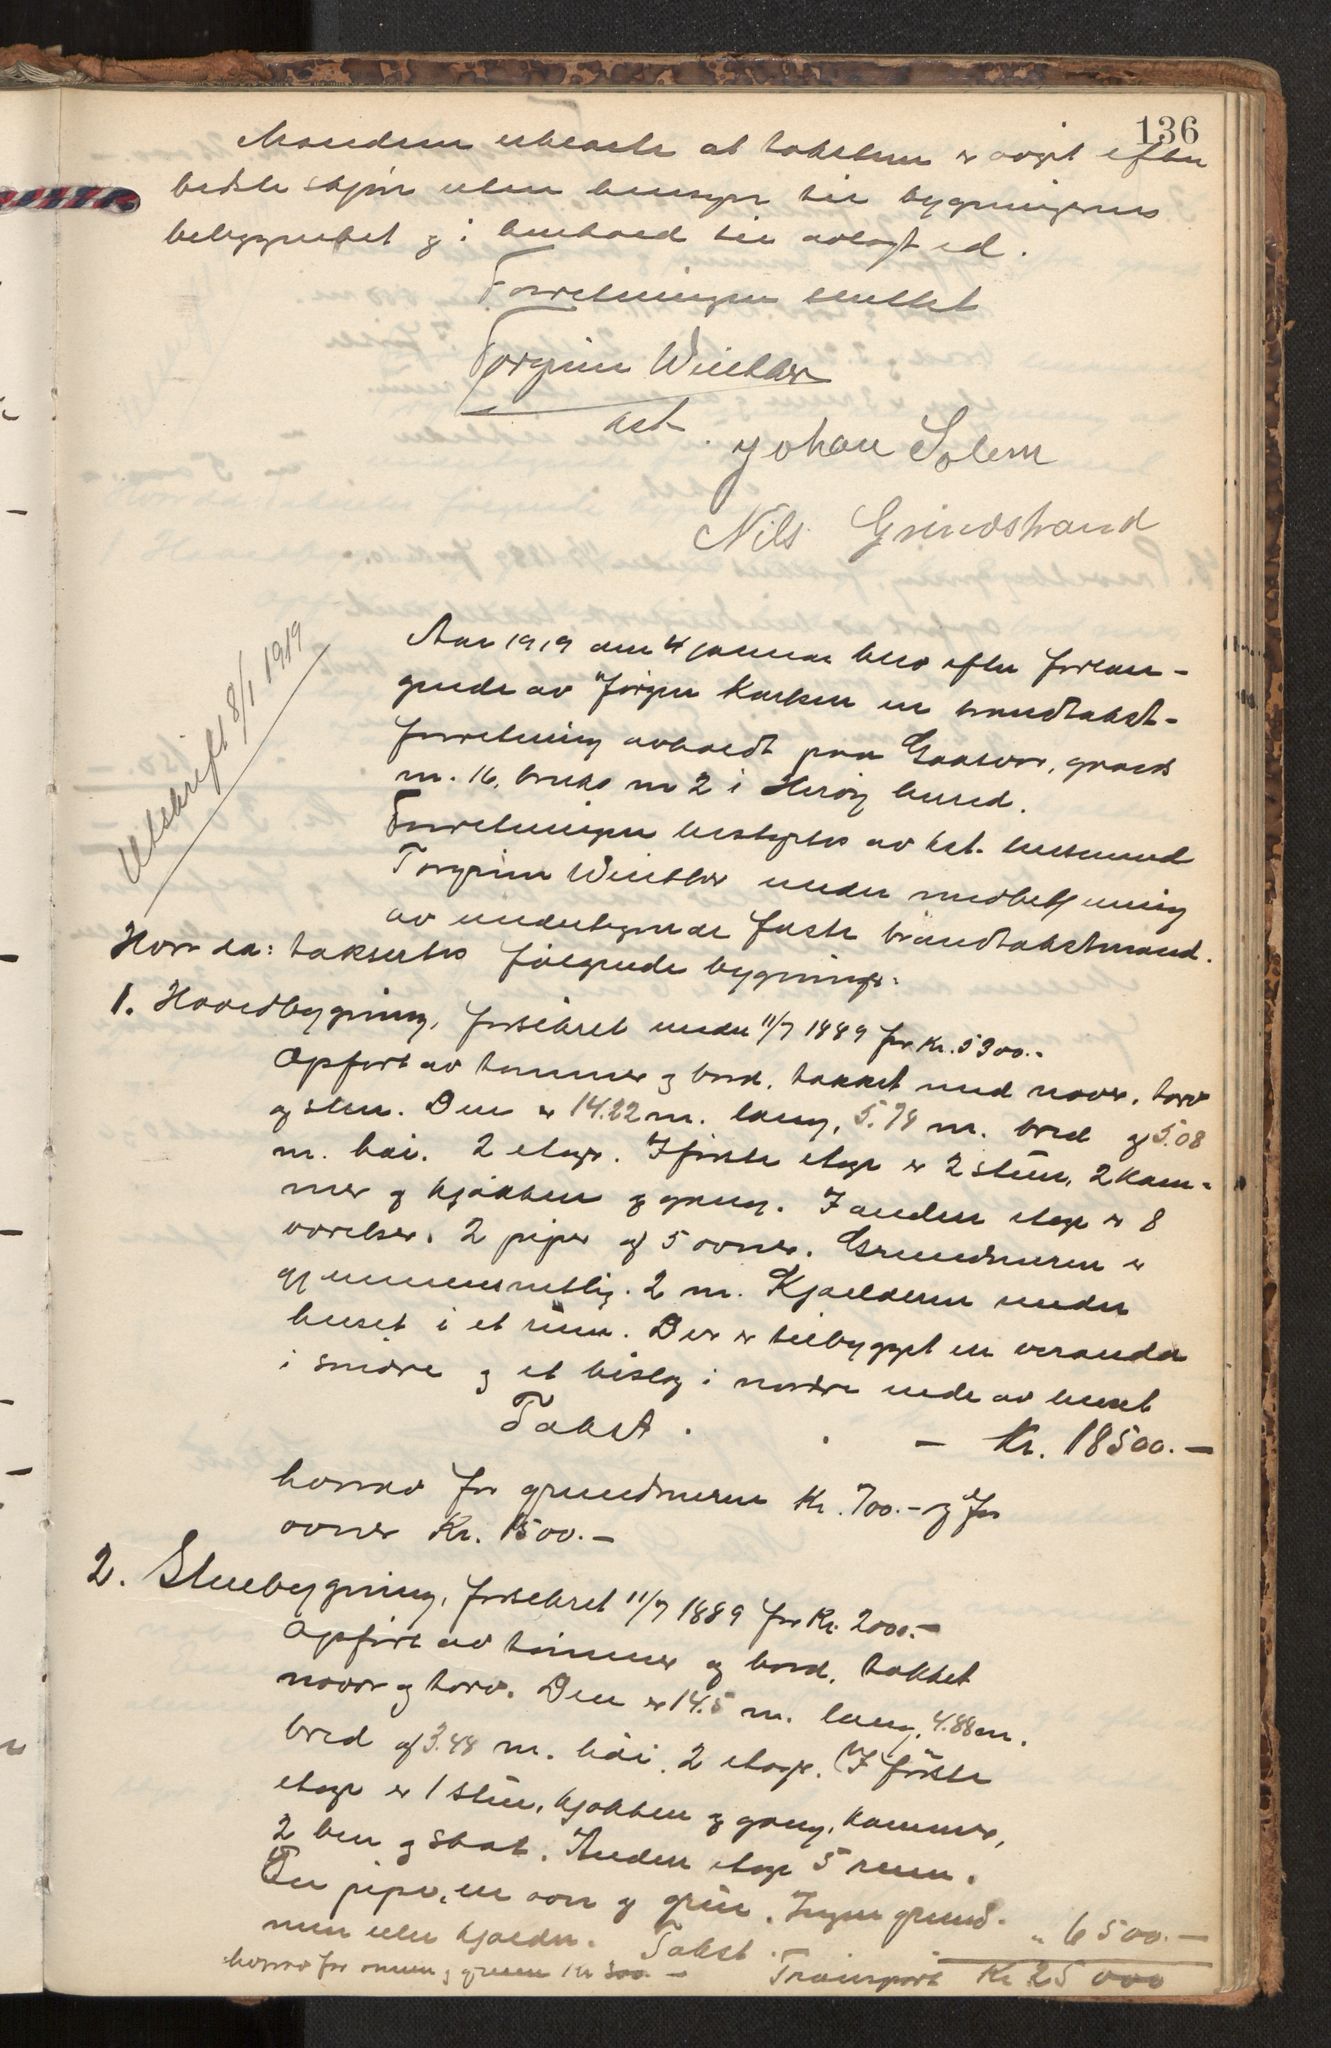 136
Mændene erklærte at taksten er avgit efter
bedste skjøn uten hensyn til bygningernes
beliggenhet og i henhold til avlagt ed.
Forretningen sluttet
Torgrim Winther
ast.
Johan Solem
Nils Grindstrand
Utskrift 8/1 1919
Aar 1919 den 4 januar blev efter forlan-
gende av Jørgen Karlsen en brandtakst-
forretning avholdt paa Gaasvær, gaards
nr. 16, bruks nr 2 i Herøy herred.
Forretningen bestyrtes av kst. lensmand
Torgrim Winther under medbetjening
av undertegnede faste brandtakstmænd.
Hvor da: taksertes følgende bygninger:
1. Hovedbygning, forsikret under 11/7 1889 for Kr. 5300.-
Opført av tømmer og bord, tækket med næver, torv
og sten. Den er 14.22 m. lang, 5.78 m. bred og 5.08
m. høi. 2 etage. I første etage er 2 stuer, 2 kam-
mer og kjøkken og gang. I anden etage er 8
værelser. 2 piper og 5 ovner. Grundmuren er
gjennemsnitlig 2 m. Kjælderen under
huset i et rum. Der er tilbygget en veranda
i søndre og et bislag i nordre ende av huset
Takst . . - Kr. 18500.-
hvorav for grundmuren Kr. 700.- og for
ovner Kr. 1500.-
2. Stuebygning, forsikret 11/7 1889 for Kr. 2000.-
Opført av tømmer og bord, tækket
næver og torv. Den er 14.5 m. lang, 4.88 m.
bred og 3.48 m. høi. 2 etage. I første
etage er 1 stue, kjøkken og gang, kammer,
2 og skot. Anden etage 5 rum.
En pipe, en ovn og grue. Ingen grund-
mur eller kjælder. Takst. " 6500.-
hvorav for ovnen og gruen Kr 300.- Transport Kr 25 000